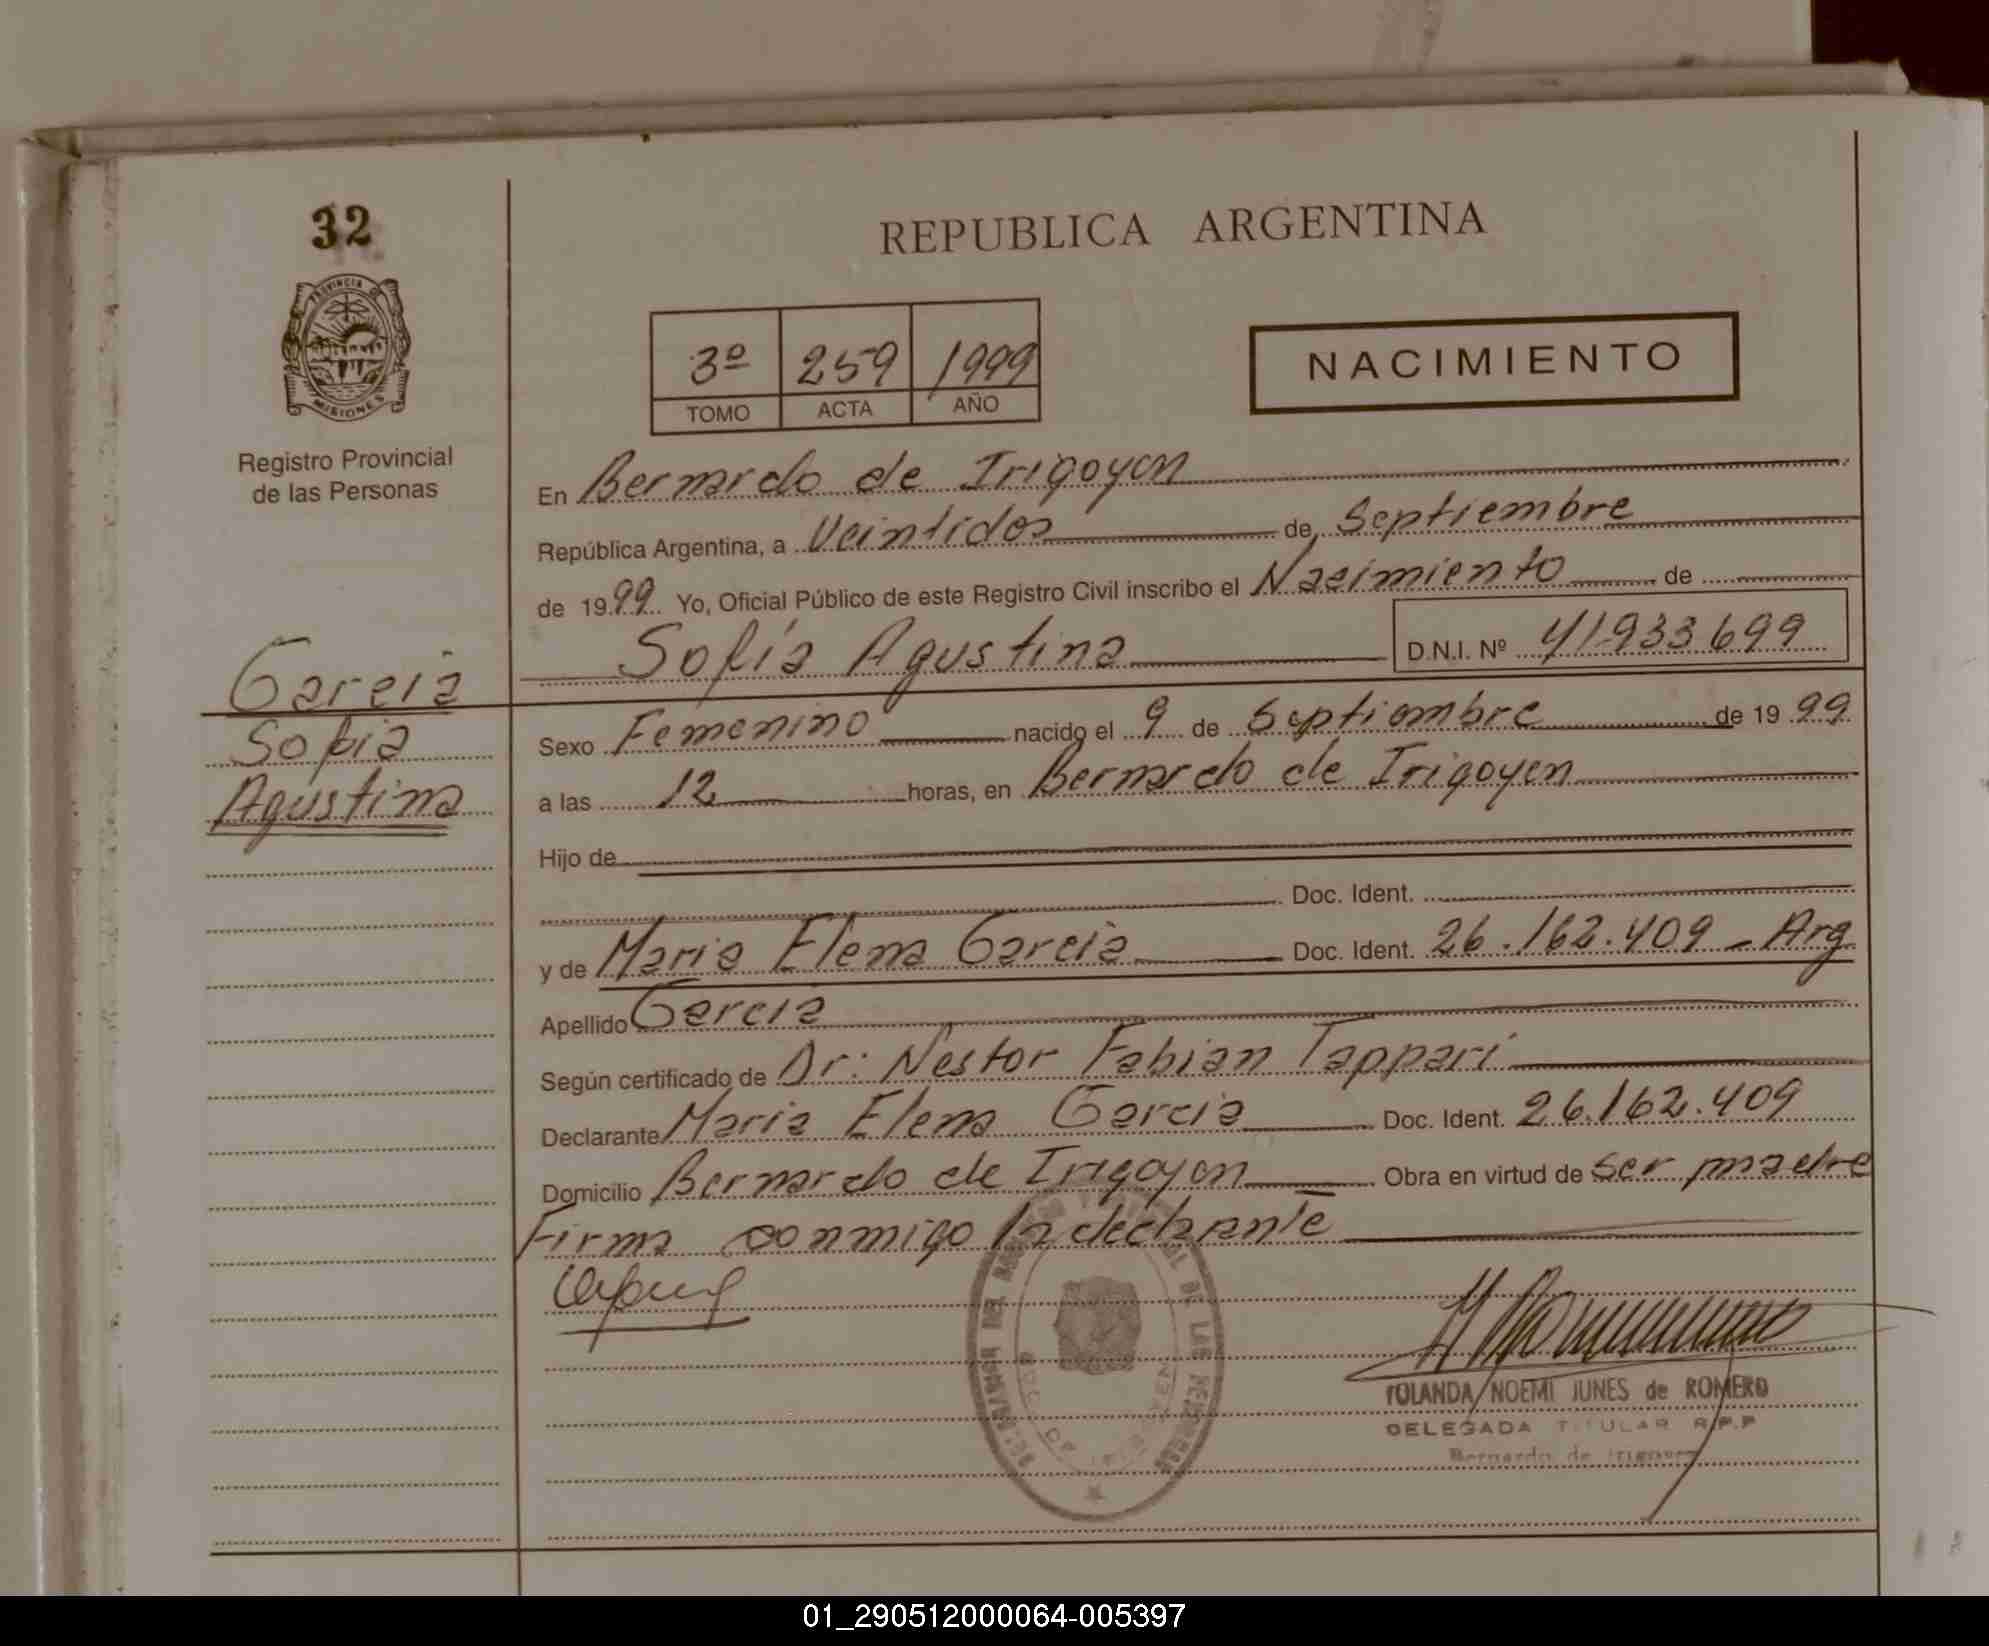 32
PROVINCIA DE
MISIONES
Registro Provincial
de las Personas
Garcia
Sofia
Agustina
REPUBLICA ARGENTINA
3º 259 1999
TOMO ACTA AÑO
NACIMIENTO
En Bernardo de Irigoyen
República Argentina, a Veintidos de Septiembre
de 1999 Yo, Oficial Público de este Registro Civil inscribo el Nacimiento de
Sofía Agustina D.N.I. Nº 41933699
Sexo Femenino nacido el 9 de Septiembre de 1999
a las 12 horas, en Bernardo de Irigoyen
Hijo de
Doc. Ident.
y de Maria Elena Garcia Doc. Ident. 26.162.409 - Arg
Apellido Garcia
Según certificado de Dr: Nestor Fabian Tappari
Declarante Maria Elena Garcia Doc. Ident. 26.162.409
Domicilio Bernardo de Irigoyen Obra en virtud de ser madre
Firma conmigo la declarante
YOLANDA NOEMI JUNES de ROMERO
DELEGADA TITULAR R.P.P
Bernardo de Irigoyen
01_290512000064-005397